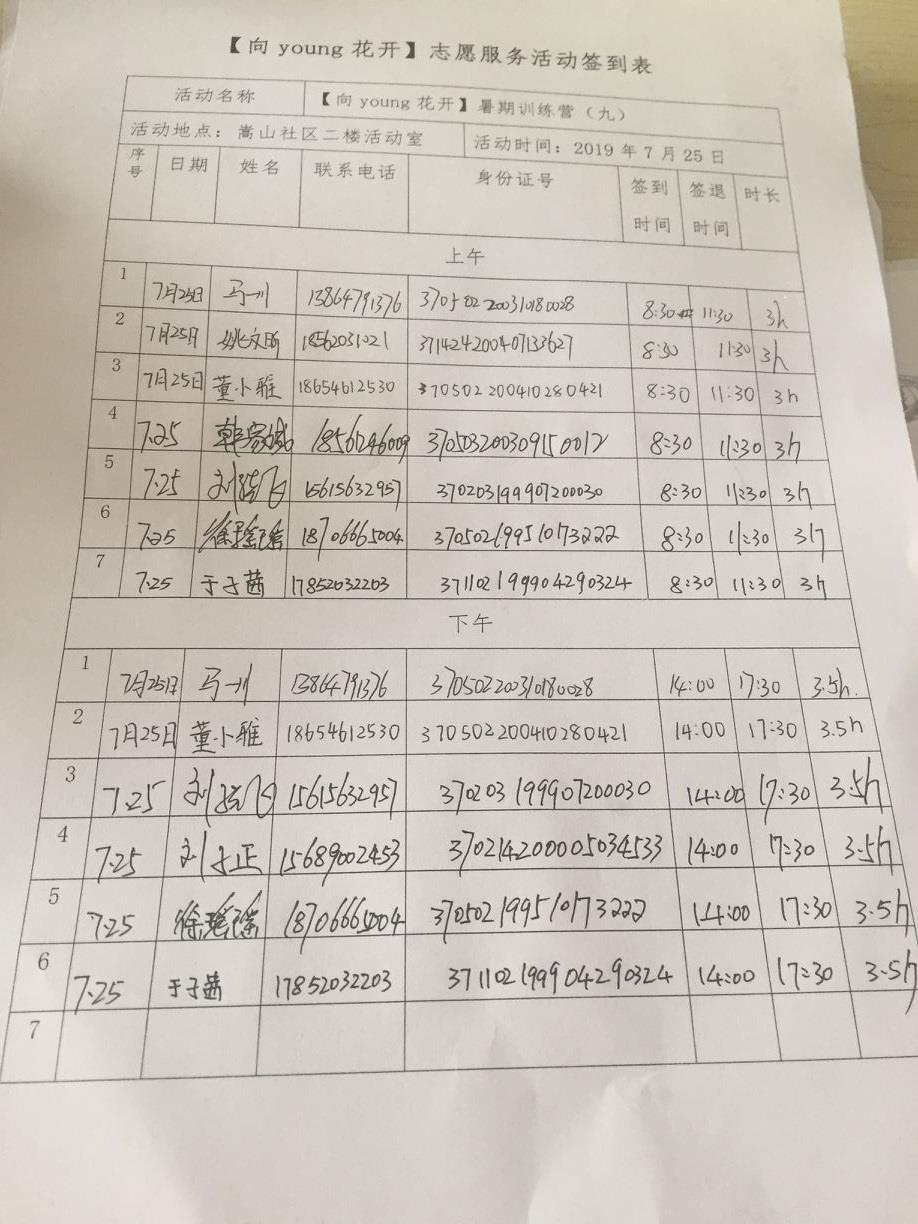 【向 young 花开】志愿服务活动签到表
活动名称 【向 young 花开】暑期训练营（九）
活动地点：嵩山社区二楼活动室 活动时间：2019 年 7 月 25 日
序号 日期 姓名 联系电话 身份证号 签到时间 签退时间 时长
上午
1 7月25日 马一川 13864791376 370502200310180028 8:30 11:30 3h
2 7月25日 18562031021 371424200407133627 8:30 11:30 3h
3 7月25日 董小雅 18654612530 370502200410280421 8:30 11:30 3h
4 7.25 18561246009 370503200309150012 8:30 11:30 3h
5 7.25 15615632957 370203199907200030 8:30 11:30 3h
6 7.25 18706665004 370502199510173222 8:30 11:30 3h
7 7.25 于子茜 17852032203 371102199904290324 8:30 11:30 3h
下午
1 7月25日 马一川 13864791376 370502200310180028 14:00 17:30 3.5h.
2 7月25日 董小雅 18654612530 370502200410280421 14:00 17:30 3.5h
3 7.25 15615632957 370203199907200030 14:00 17:30 3.5h
4 7.25 刘子正 15689002453 370214200005034533 14:00 17:30 3.5h
5 7.25 18706665004 370502199510173222 14:00 17:30 3.5h
6 7.25 于子茜 17852032203 371102199904290324 14:00 17:30 3.5h
7